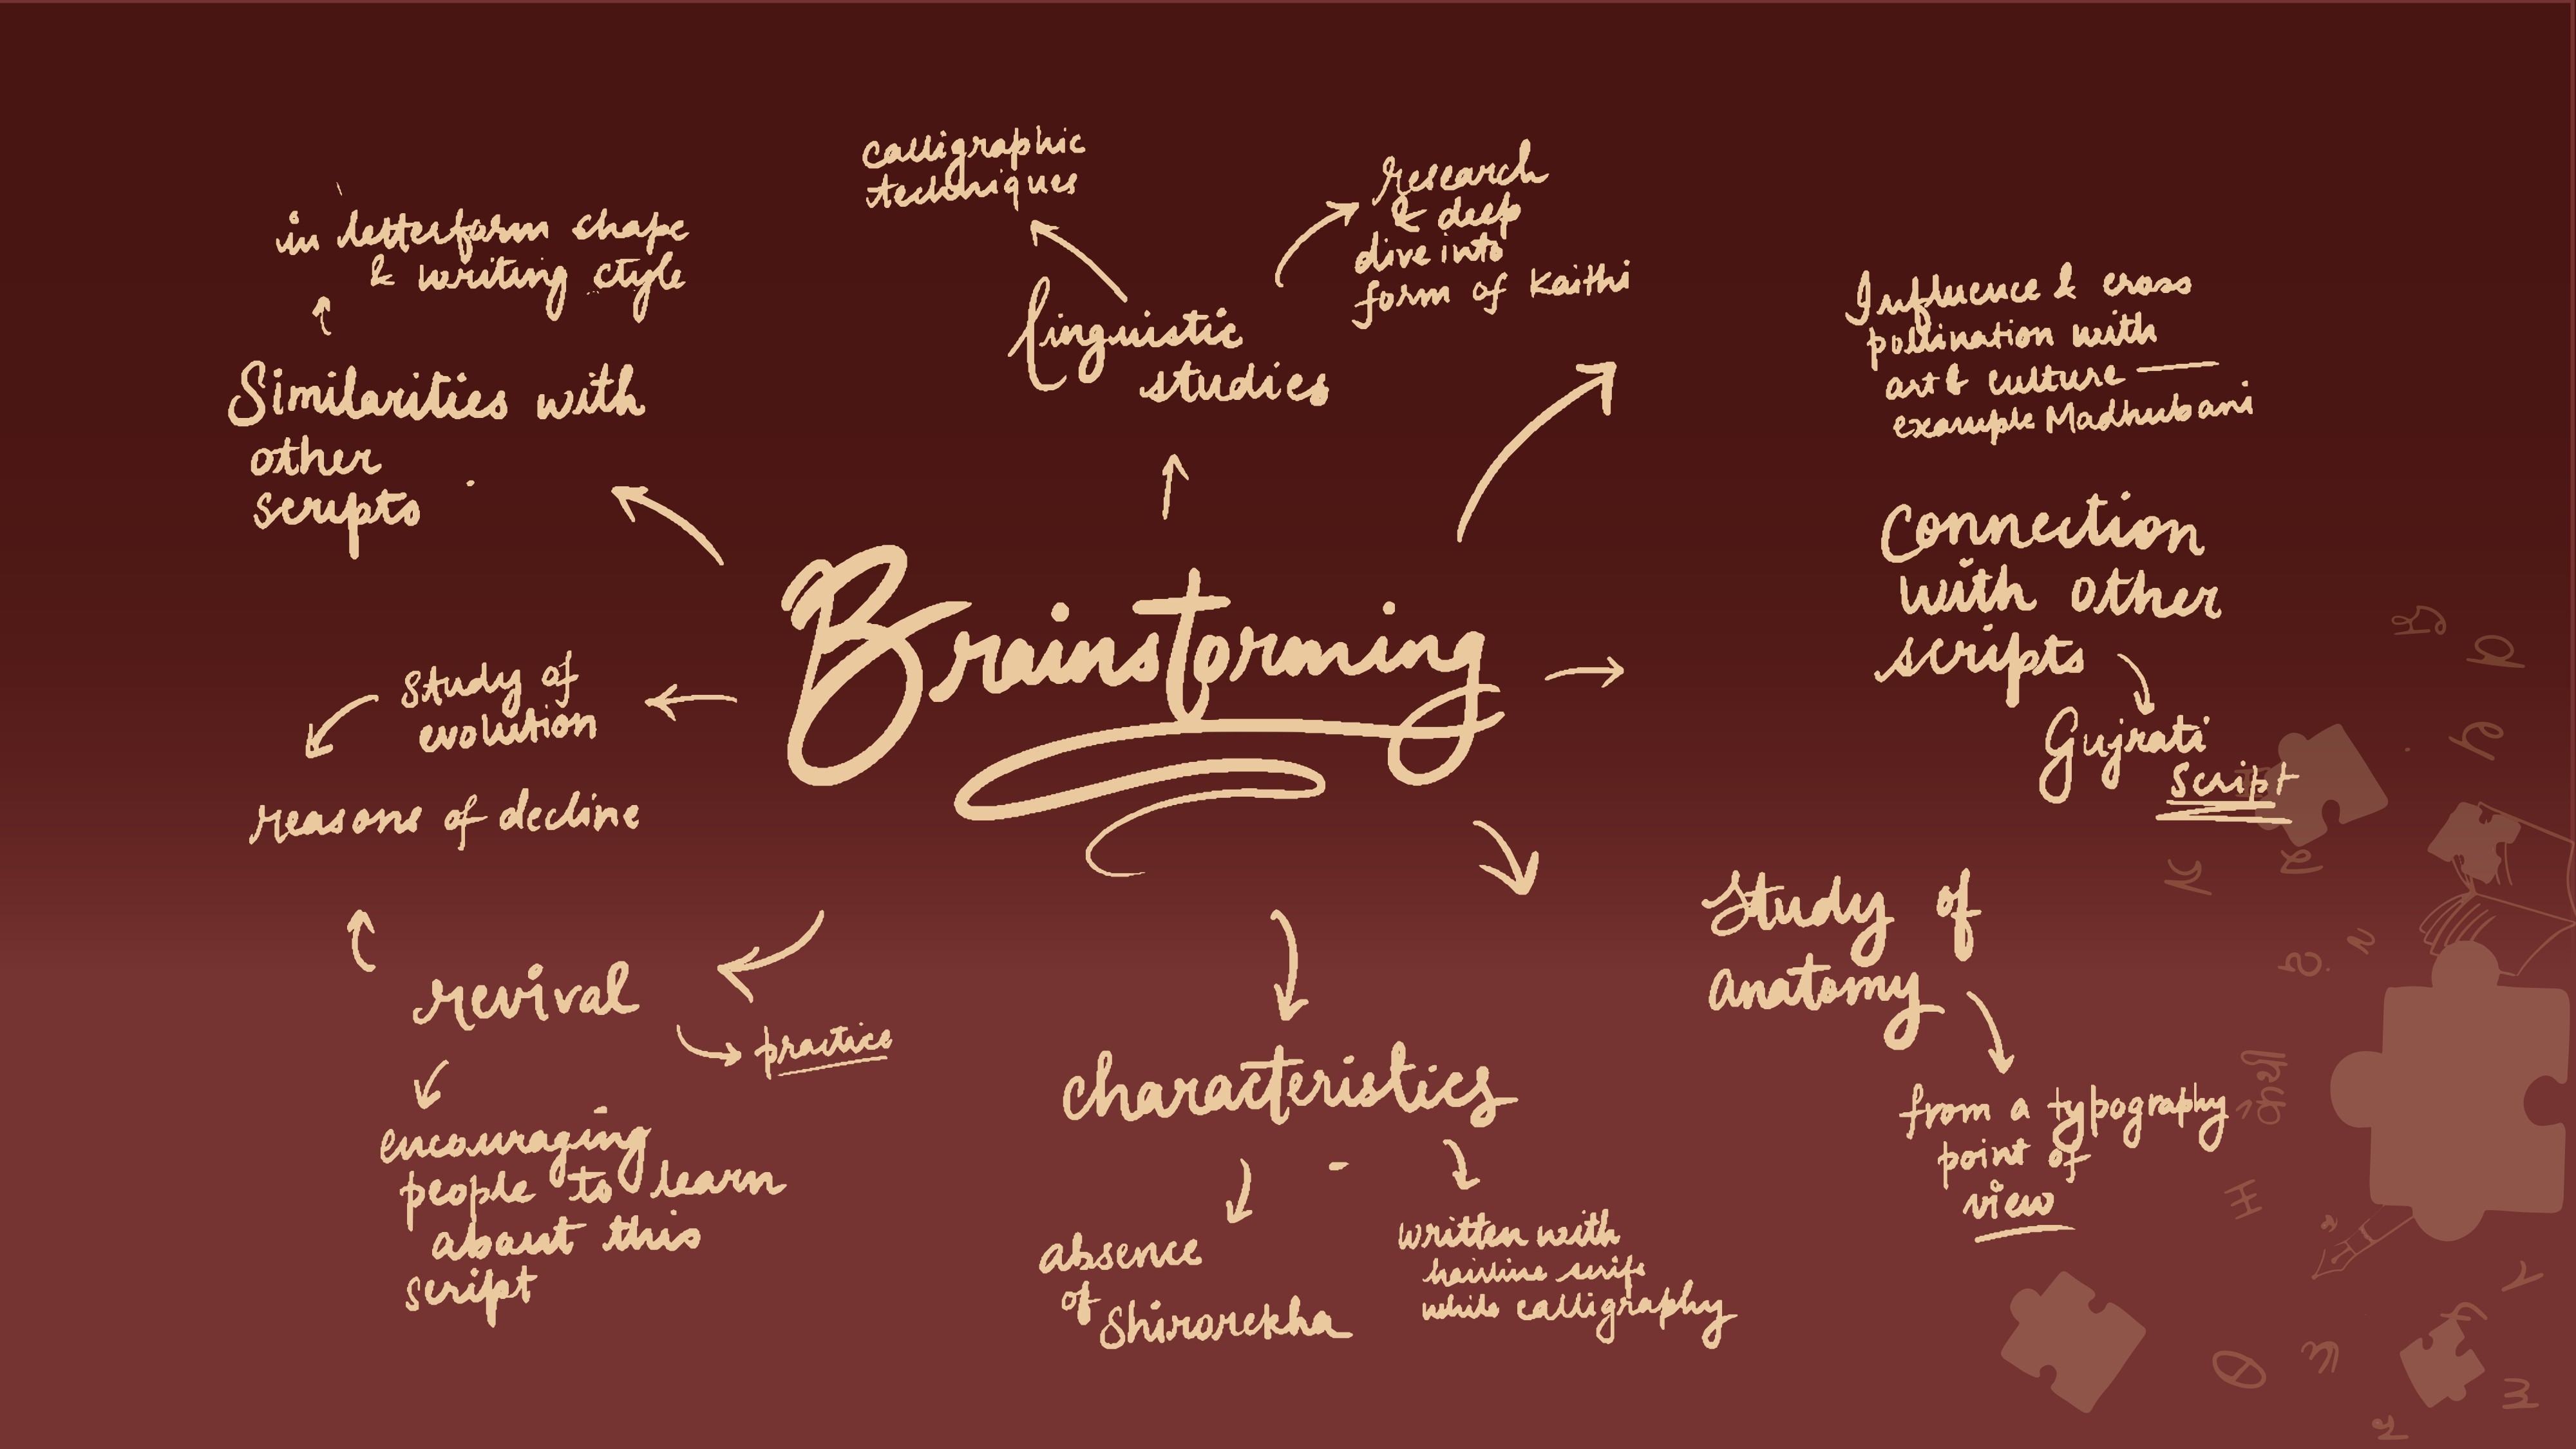 calligraphic
techniques
research
& deep
dive into
form of Kaithi
in letterform shape
& writing style
Linguistic
studies
Influence & cross
pollination with
art & culture —
example Madhubani
Similarities with
other
scripts
Connection
with other
scripts
Gujrati
script
Brainstorming
study of
evolution
reasons of decline
Study of
anatomy
from a typography
point of
view
revival
practice
encouraging
people to learn
about this
script
characteristics
absence
of
Shirorekha
written with
hairline serifs
while calligraphy